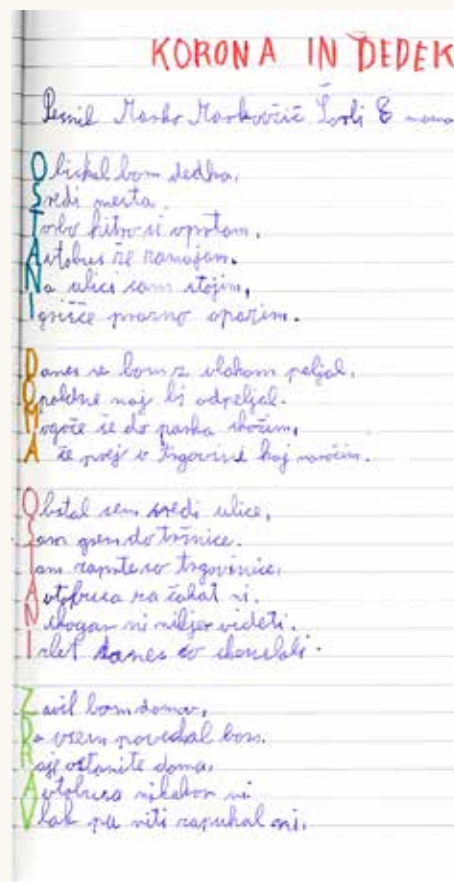 KORONA IN DEDEK
Pesnil Marko Markovčič Švrli 8
Obiskal bom dedka,
Sredi mesta.
Torbo hitro si oprtam,
Avtobus že zamujam.
Na ulici sam stojim,
Igrišče prazno opazim.
Danes se bom z vlakom peljal,
Opoldne naj bi odpeljal.
Mogoče še do parka skočim,
A še prej v trgovini kaj naročim.
Obstal sem sredi ulice,
Sam grem do tržnice.
Tam zaprte so trgovinice,
Avtobusa za čakat ni.
Nikogar ni nikjer videti.
Izlet danes so
Zavil bom domov,
Ra vsem povedal bom.
Raje ostanite doma,
Avtobusa nikakor ni
Vlak pa niti zapuhal ni.